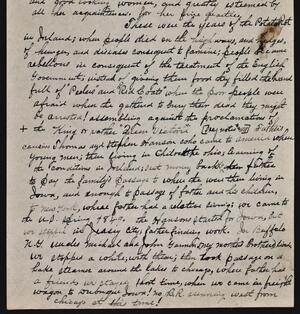 and good looking women, and greatly esteemed by
all her acquaintances for her fine qualities.
These were the years of the Potato Rot
in Ireland; when people died on the high ways and hedges,
of hunger, and diseases consequent to famine; people became
rebellious in consequent of the treatment of the English
Government; instead of giving them food they filled the land
full of "Pealers" and "Red Coats" when the poor people were
afraid when the gathered to bury their dead they might
be arrested assembling against the proclamation of
+ the King or rather Queen Victoria. Father's
cousin Thomas and Stephen Hanson who came to America when
young men; then living in Chilicothe Ohio; learning of
the conditions in Ireland; sent money back to Father
to Pay the family's Passage where the were then living in
Iowa, and enough to passage of father and his children,
to New York, where father had a relative living; we came to
the U.S. Spring 1849. The Hansons started for Iowa, but
we stopped in Jersey City, father finding work. In Buffalo
N.Y. uncles Michael and John
we stopped a while, with them; then took passage on a
Lake steamer around the lakes to Chicago, where father had
a friends we stayed short time, when we came in freight
wagon to Dubuque Iowa! no R.R. running west from
Chicago at this time!